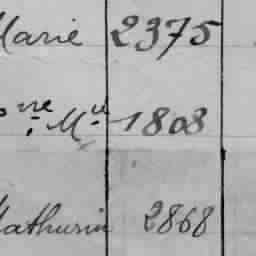 Marie 2375
ne Mie 1808
Mathurin 2868